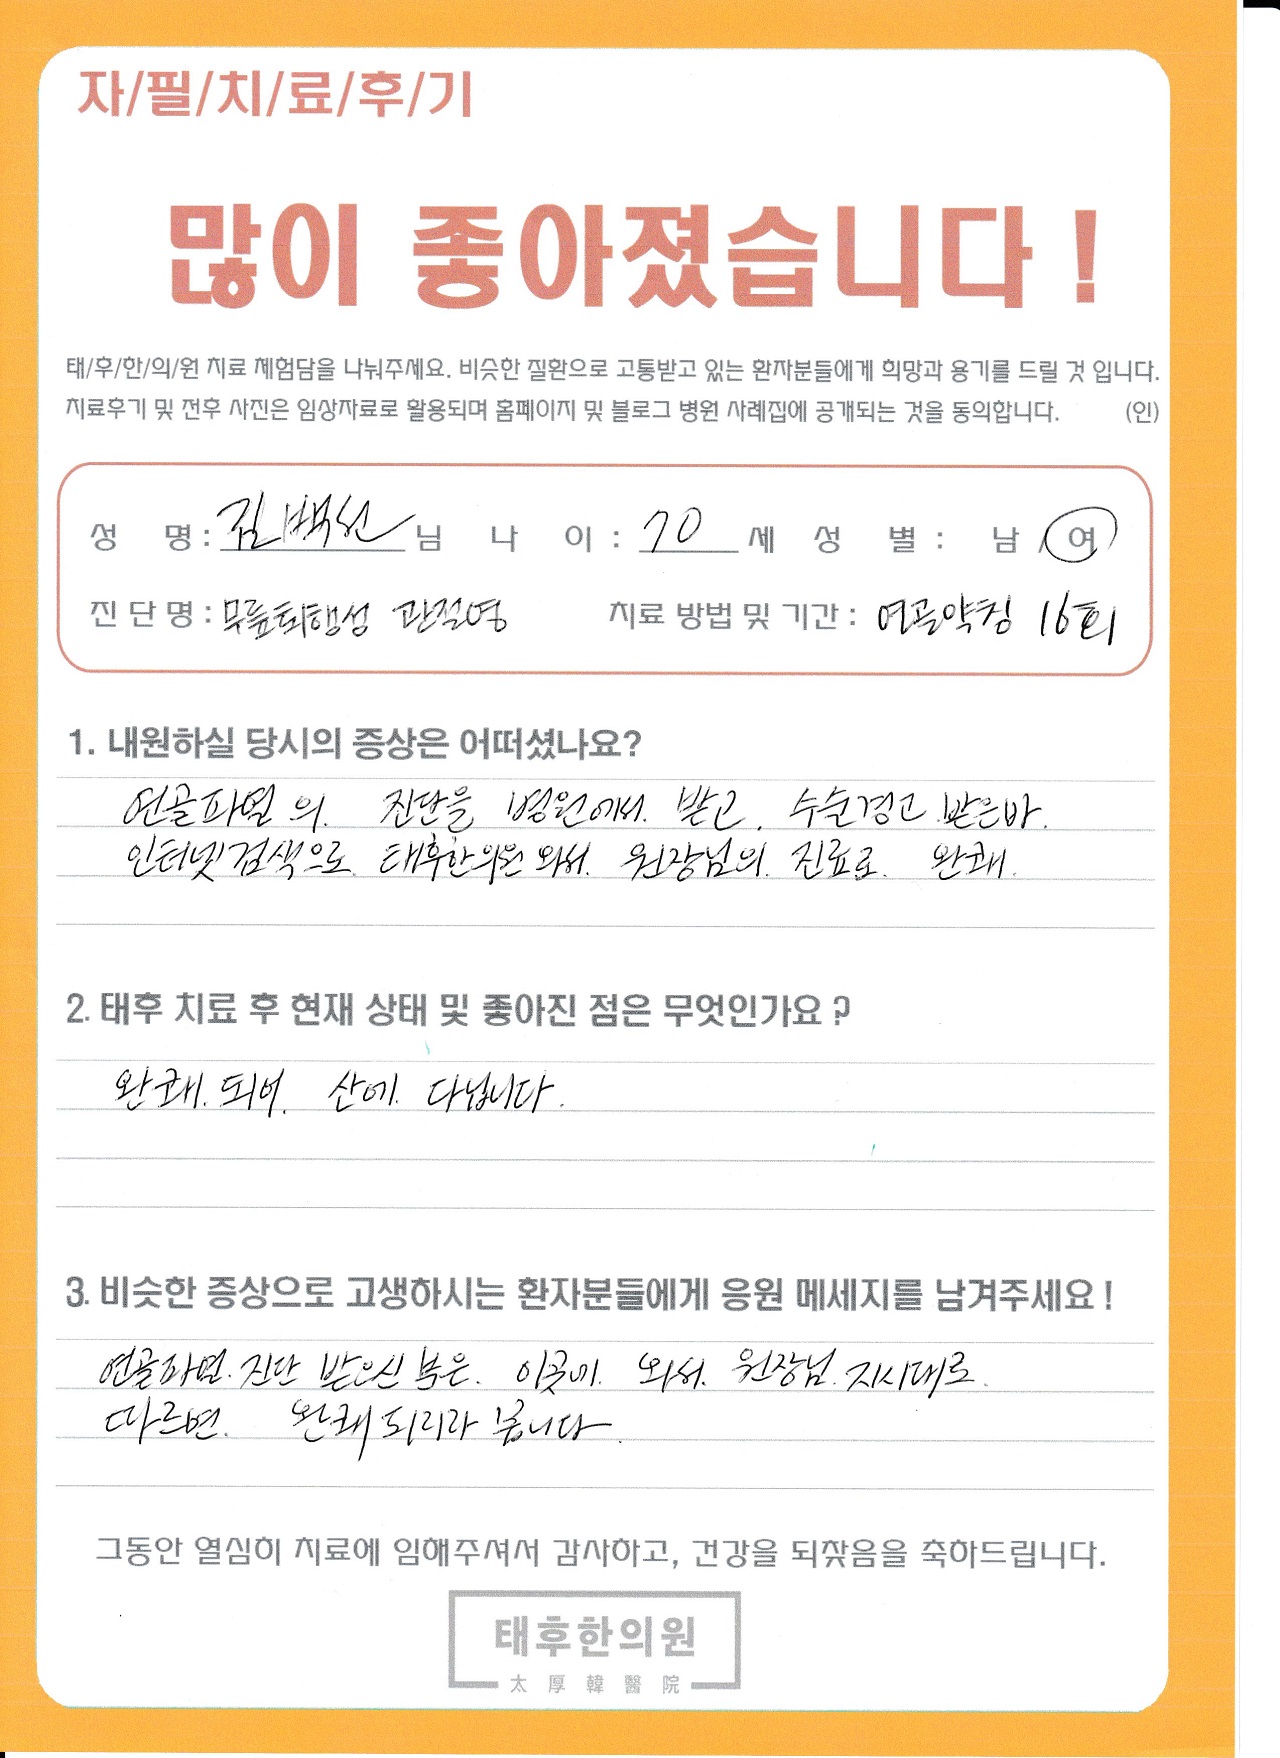 자/필/치/료/후/기
많이 좋아졌습니다!
태/후/한/의/원 치료 체험담을 나눠주세요. 비슷한 질환으로 고통받고 있는 환자분들에게 희망과 용기를 드릴 것 입니다.
치료후기 및 전후 사진은 임상자료로 활용되며 홈페이지 및 블로그 병원 사례집에 공개되는 것을 동의합니다. (인)
성 명 : 김백선 님 나 이 : 70 세 성 별 : 남 / 여
진 단 명 : 무릎퇴행성 관절염 치료 방법 및 기간 : 연골약침 16회
1. 내원하실 당시의 증상은 어떠셨나요?
연골파열의. 진단을 병원에서. 받고. 수술권고 받은바.
인터넷검색으로. 태후한의원 와서. 원장님의. 진료로. 완쾌.
2. 태후 치료 후 현재 상태 및 좋아진 점은 무엇인가요?
완쾌. 되어. 산에. 다닙니다.
3. 비슷한 증상으로 고생하시는 환자분들에게 응원 메세지를 남겨주세요!
연골파열. 진단 받으신 분은. 이곳에. 와서. 원장님. 지시대로.
따르면. 완쾌되리라 봅니다.
그동안 열심히 치료에 임해주셔서 감사하고, 건강을 되찾음을 축하드립니다.
태후한의원
太厚韓醫院